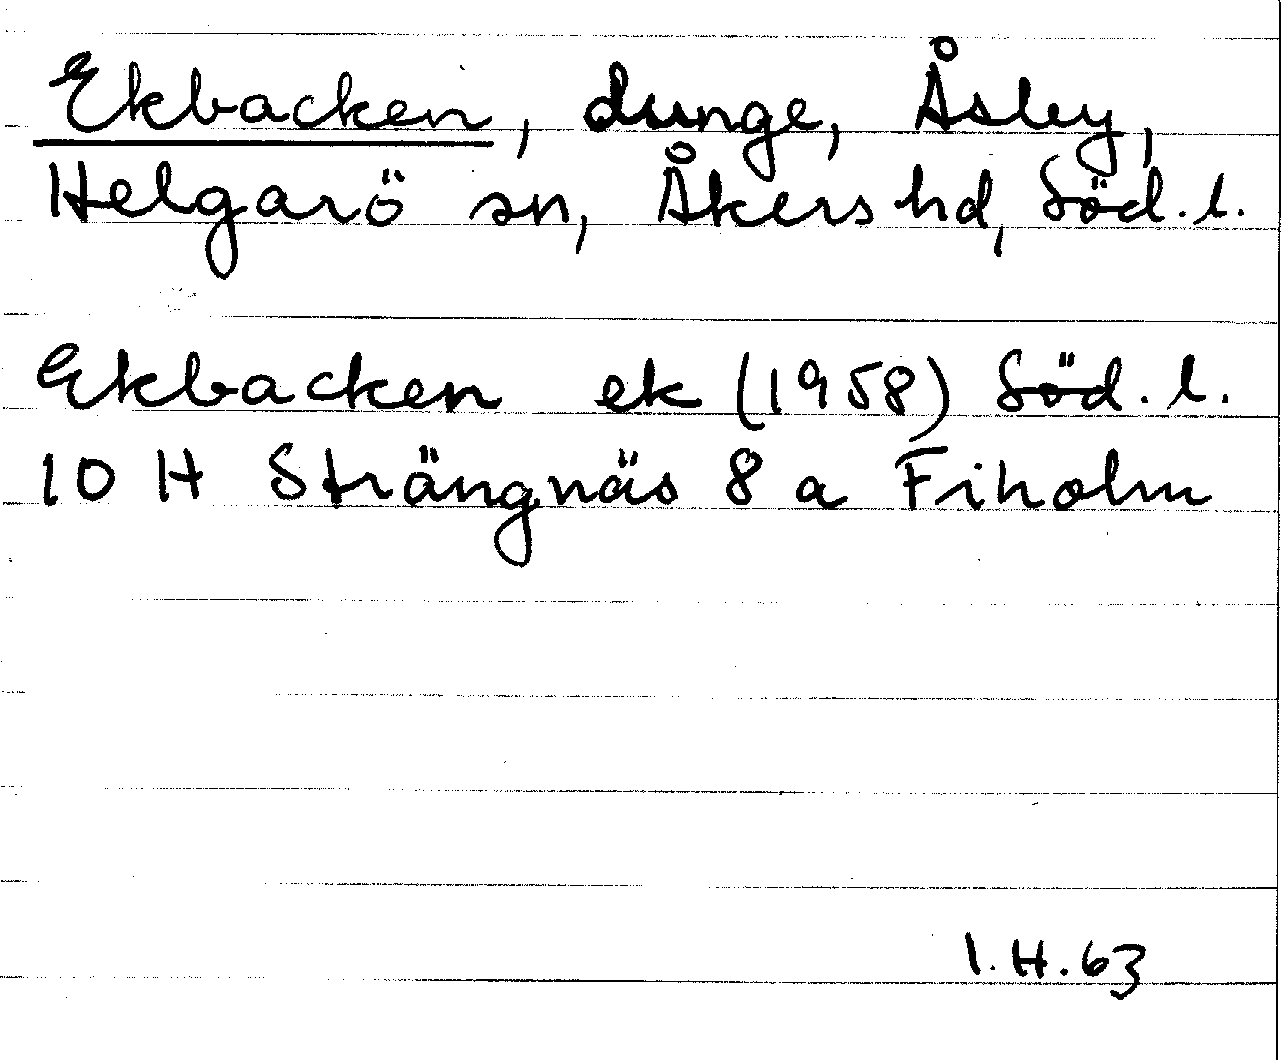 Ekbacken, dunge, Åsby,
Helgarö sn, Åkers hd, Söd. l.
Ekbacken ek (1958) Söd. l.
10 H Strängnäs 8 a Fiholm
I.H.63